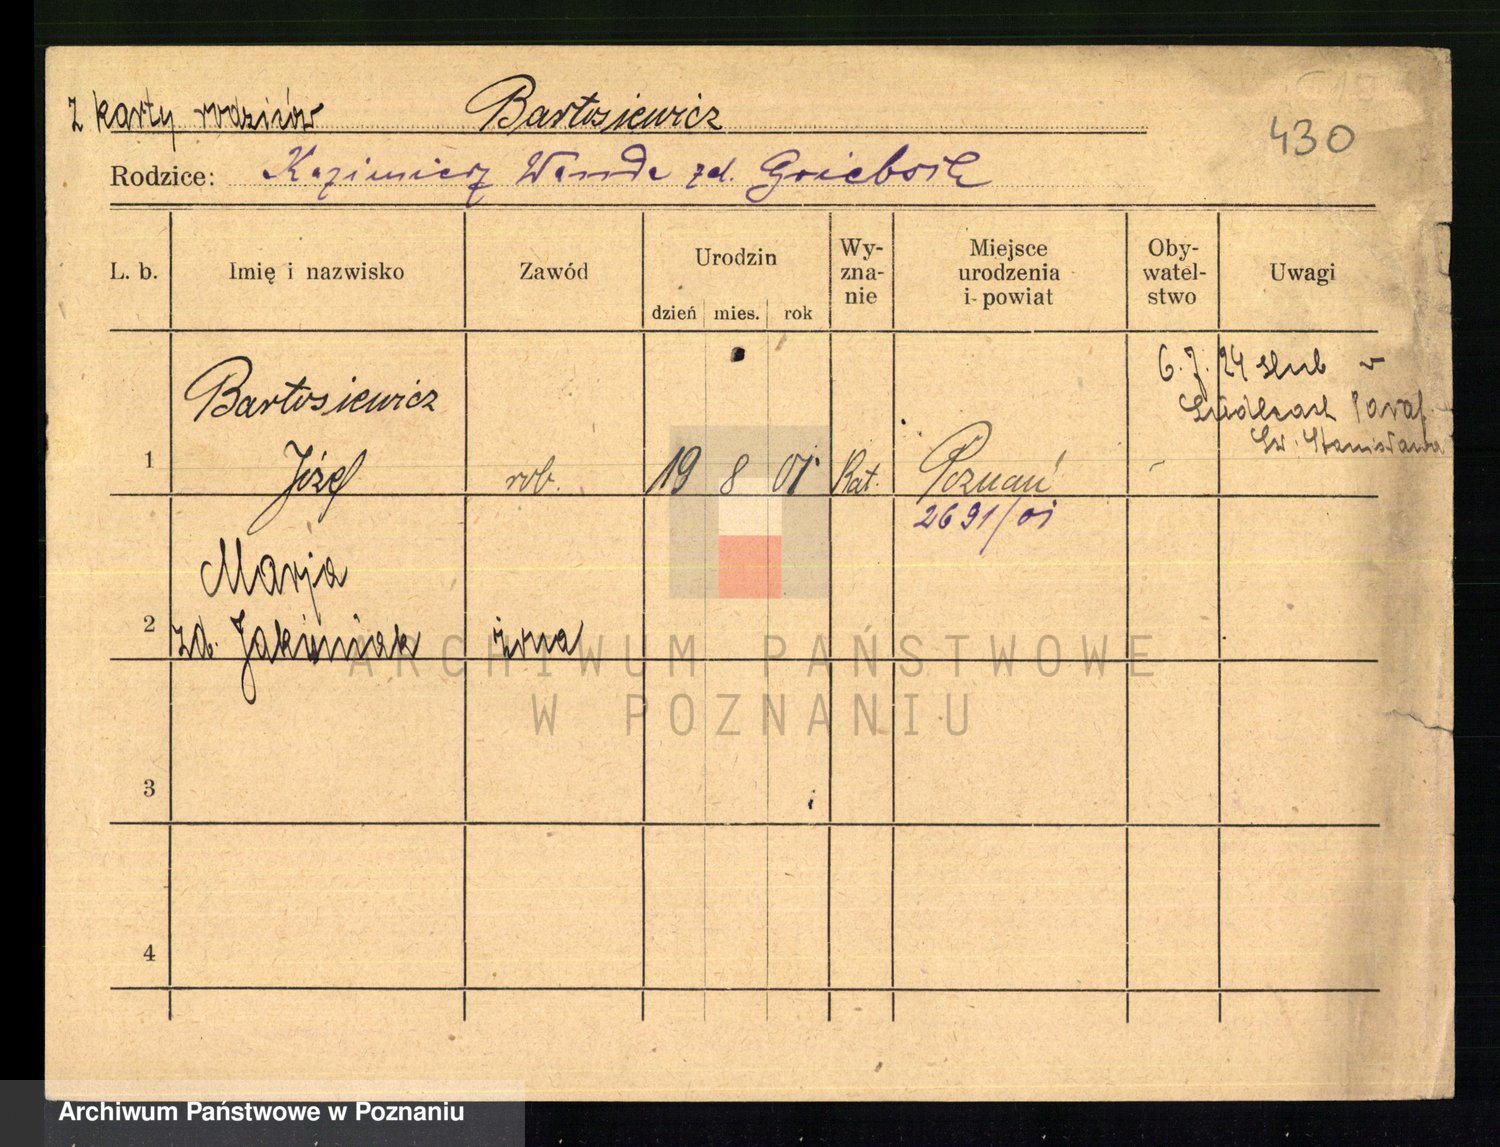 z karty rodziców Bartosiewicz
430
Rodzice: Kazimierz Wanda zd.
L. b. Imię i nazwisko Zawód Urodzin Wy-zna-nie Miejsce urodzenia i powiat Oby-watel-stwo Uwagi
dzień mies. rok
6. 7. 24 ślub w
Paraf.
Św. Stanisława
Bartosiewicz
1 Józef rob. 19 8 01 Kat. Poznań -
2691/01
Marja
2 zd. Jakóniak żona
3
4
ARCHIWUM PAŃSTWOWE
W POZNANIU
Archiwum Państwowe w Poznaniu